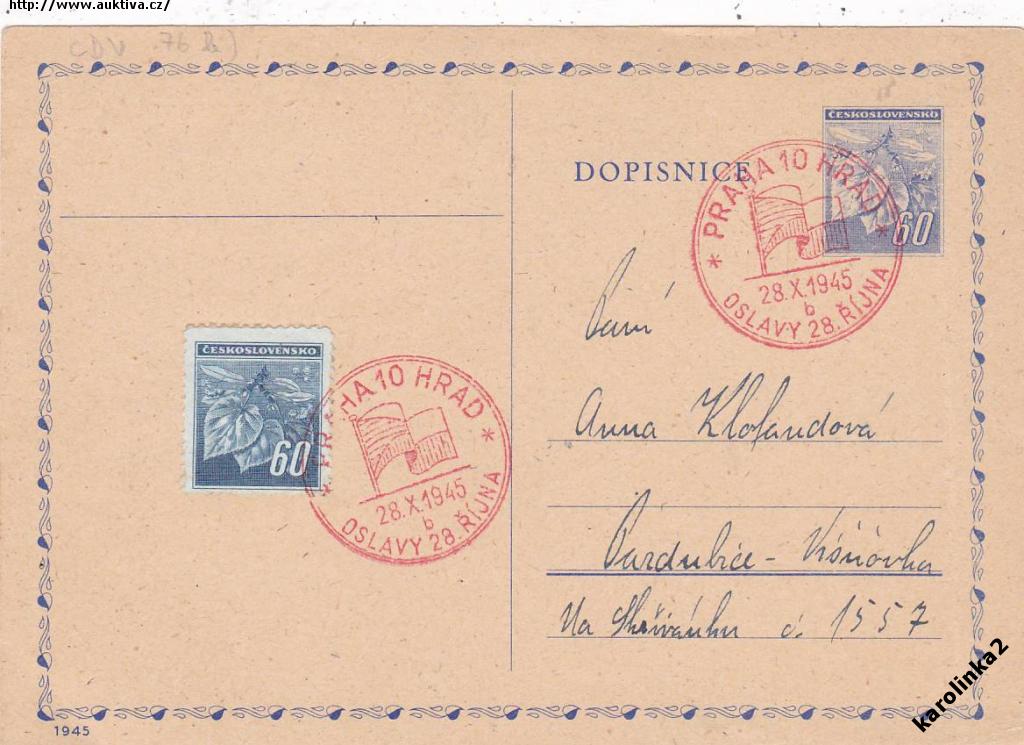 http://www.auktiva.cz/
CDV 76
ČESKOSLOVENSKO
60
DOPISNICE
* PRAHA 10 HRAD *
28.X.1945
b
OSLAVY 28. ŘÍJNA
Paní
Anna Klofandová
Pardubice - Višňovka
Na Skřivánku č. 1557
ČESKOSLOVENSKO
60
* PRAHA 10 HRAD *
28.X.1945
b
OSLAVY 28. ŘÍJNA
1945
karolinka2